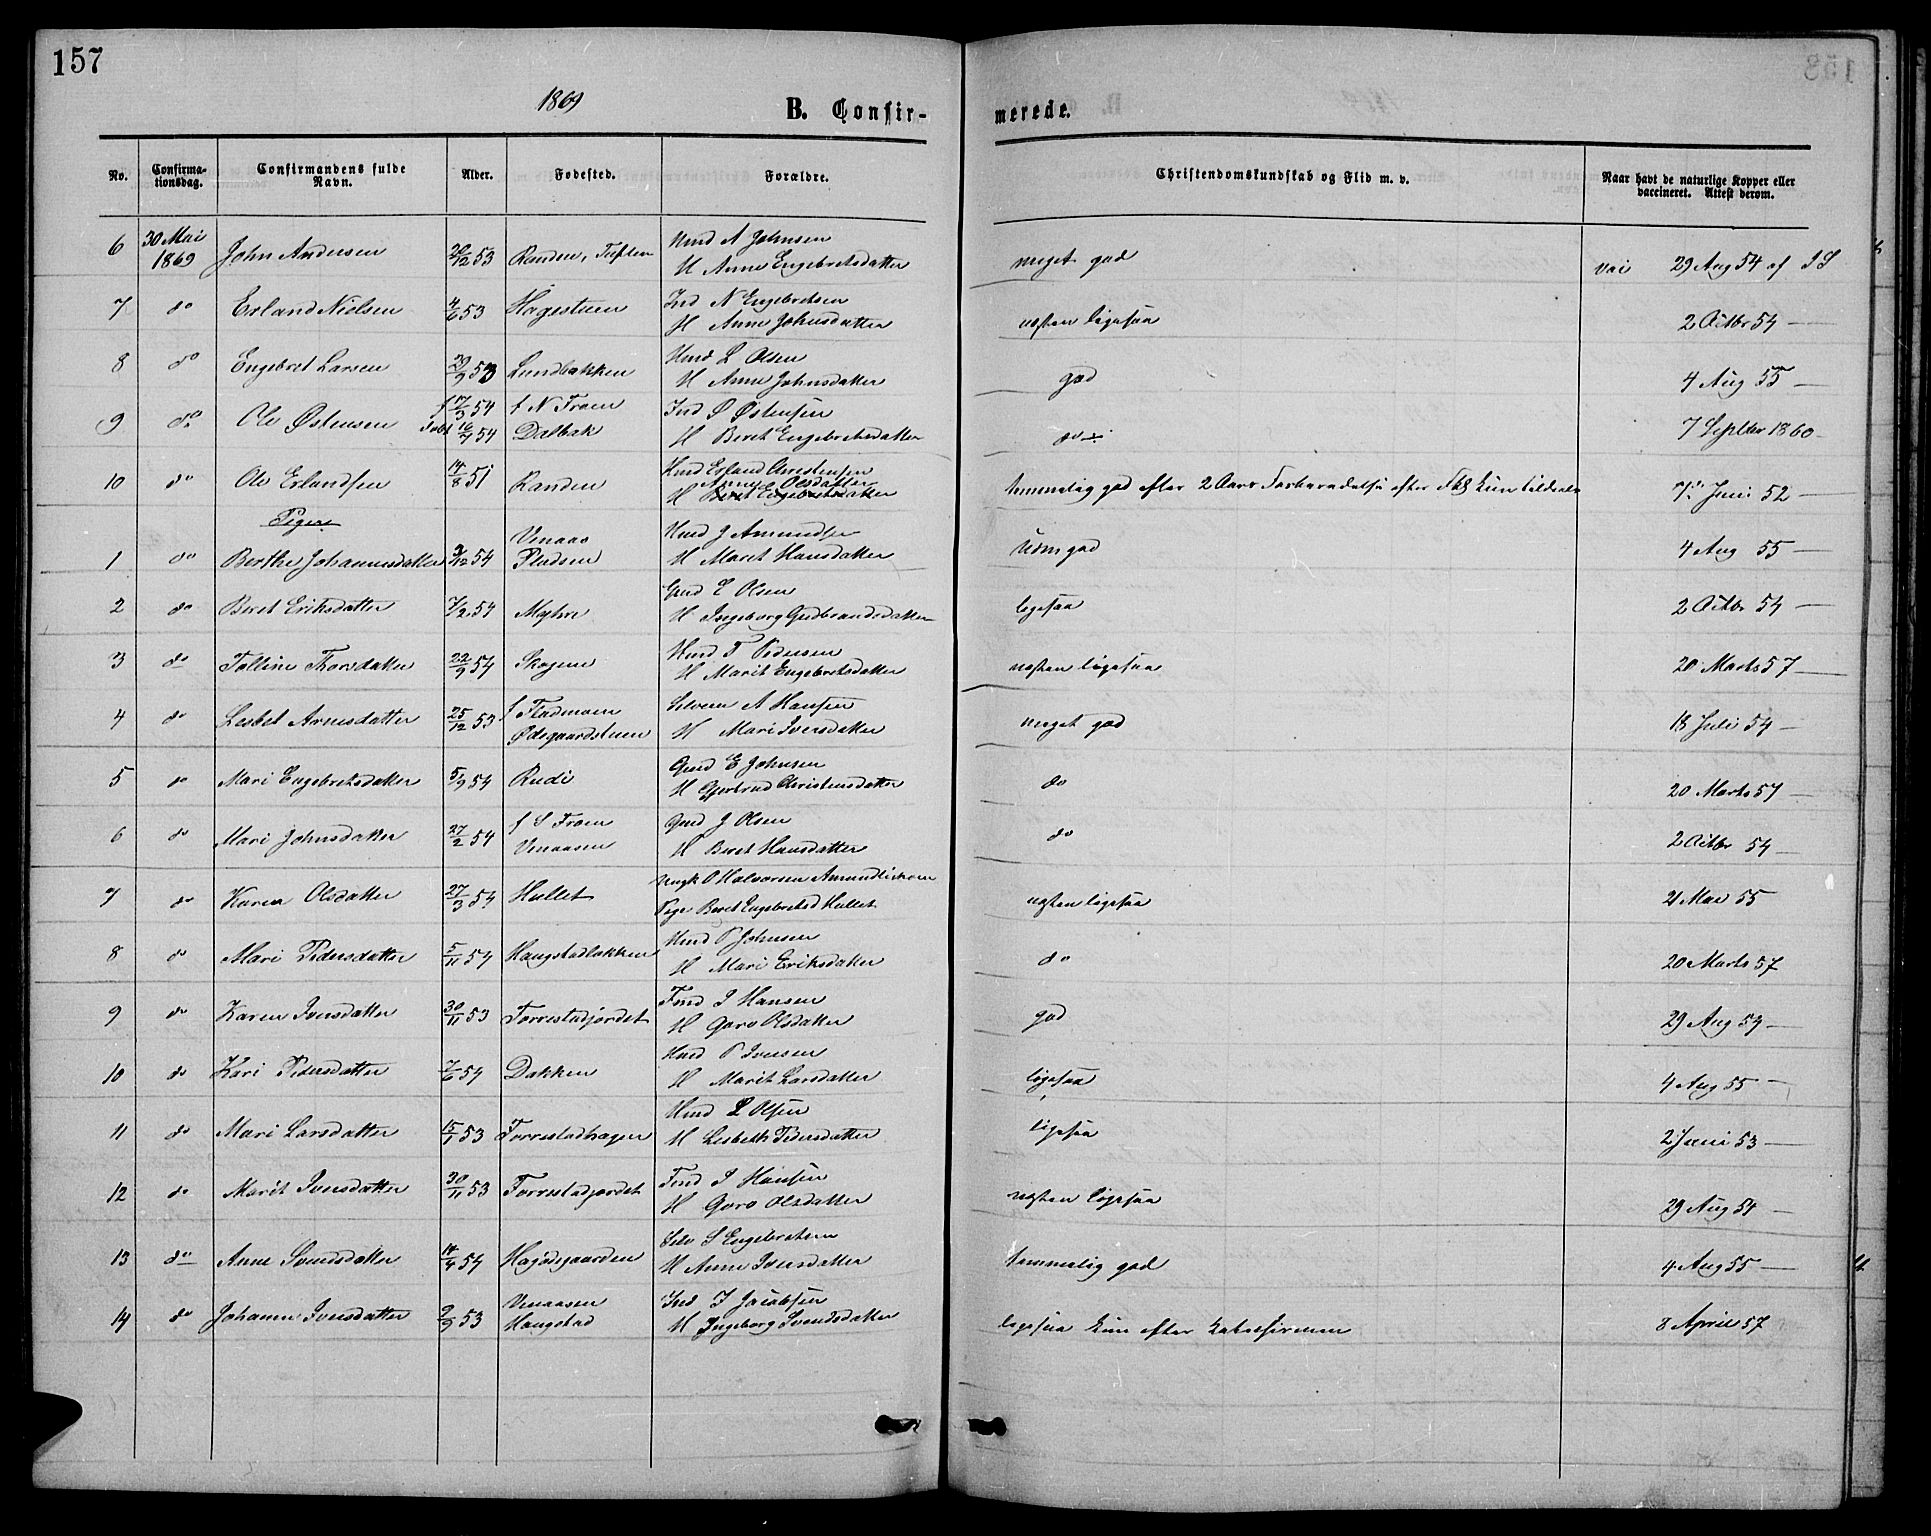 157
1869
B. Confir-
merede.
No.
Confirma-
tionsdag.
Confirmandens fulde
Navn.
Alder.
Fødested.
Forældre.
Christendomskundskab og Flid m. v.
Naar havt de naturlige Kopper eller
vaccineret. Attest derom.
6 30 Mai 1869 John Andersen 20/12 53 Randen, Tuften Hmd A Johnsen H Anne Engebretsdatter meget god vac 29 Aug 54 af
7 do Erland Nielsen 4/6 53 Hagestuen Ind N Engebretsen H Anne Johnsdatter næsten ligesaa 2 Octbr 54 —
8 do Engebret Larsen 29/9 53 Lundbakken Hmd L Olsen H Anne Johnsdatter god 4 Aug 55 —
9 do Ole Østensen f 17/3 54 16/7 54 f N Froen Dalbak Ind Østensen H Beret Engebretsdatter do 7 Septbr 1860
10 do Ole Erlandsen 14/8 51 Randen Hmd Erland Christensen Anne Olsdatter H Beret Engebretsdatter temmelig god efter 2 Aars Forberedelse efter kun Juni 52 —
Piger
1 do Berthe Johannesdatter 9/12 54 Venaas Pladsen Hmd J Amundsen H Maret Hansdatter god 4 Aug 55 —
2 do Beret Eriksdatter 7/2 54 Myhre Gmd E Olsen H Ingeborg Gudbrandsdatter ligesaa 2 Octbr 54 —
3 do Thorsdatter 22/9 54 Skogene Hmd T Pedersen H Marit Engebretsdatter næsten ligesaa 20 Marts 57 —
4 do Lisbet Arnesdatter 25/12 53 f Fladmoen Ødegaardstuen A Hansen H Mari Iversdatter meget god 18 Juli 54 —
5 do Mari Engebretsdatter 5/9 54 Rudi Gmd E Johnsen H Gjertrud Christensdatter do 20 Marts 57 —
6 do Mari Johnsdatter 27/2 54 f S Froen Venaasen Gmd J Olsen H Beret Hansdatter do 2 Octbr 54 —
7 do Karen Olsdatter 27/3 54 Hullet Ungk O Halvorsen Pige Beret Engebretsd Hullet næsten ligesaa 21 Mai 55
8 do Mari Pedersdatter 5/11 54 Haugstadbakken Hmd P Johnsen H Mari Eriksdatter do 20 Marts 57
9 do Karen Iversdatter 30/11 53 Forrestadjordet Find I Hansen H Goro Olsdatter god 29 Aug 54 —
10 do Kari Pedersdatter 7/6 54 Bakken Hmd P Iversen H Marit Larsdatter ligesaa 4 Aug 55 —
11 do Mari Larsdatter 15/1 53 Forrestadhagen Hmd L Olsen H Lisbeth Pedersdatter ligesaa 2 Juni 53 —
12 do Marit Iversdatter 30/11 53 Forrestadjordet Find I Hansen H Goro Olsdatter næsten ligesaa 29 Aug 54 —
13 do Anne Svendsdatter 14/4 54 Hagødegaarden Selv S Engebretsen H Anne Iversdatter temmelig god 4 Aug 55 —
14 do Johanne Iversdatter 9/9 53 Venaasen Haugstad Ind I Jacobsen H Ingeborg Svendsdatter ligesaa kun efter 8 April 57